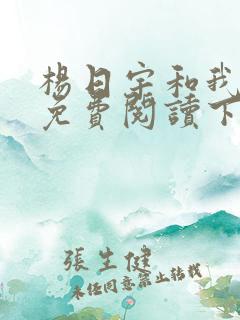 楊日宇和我
免費閱讀下
張生健
未經同意禁止轉載